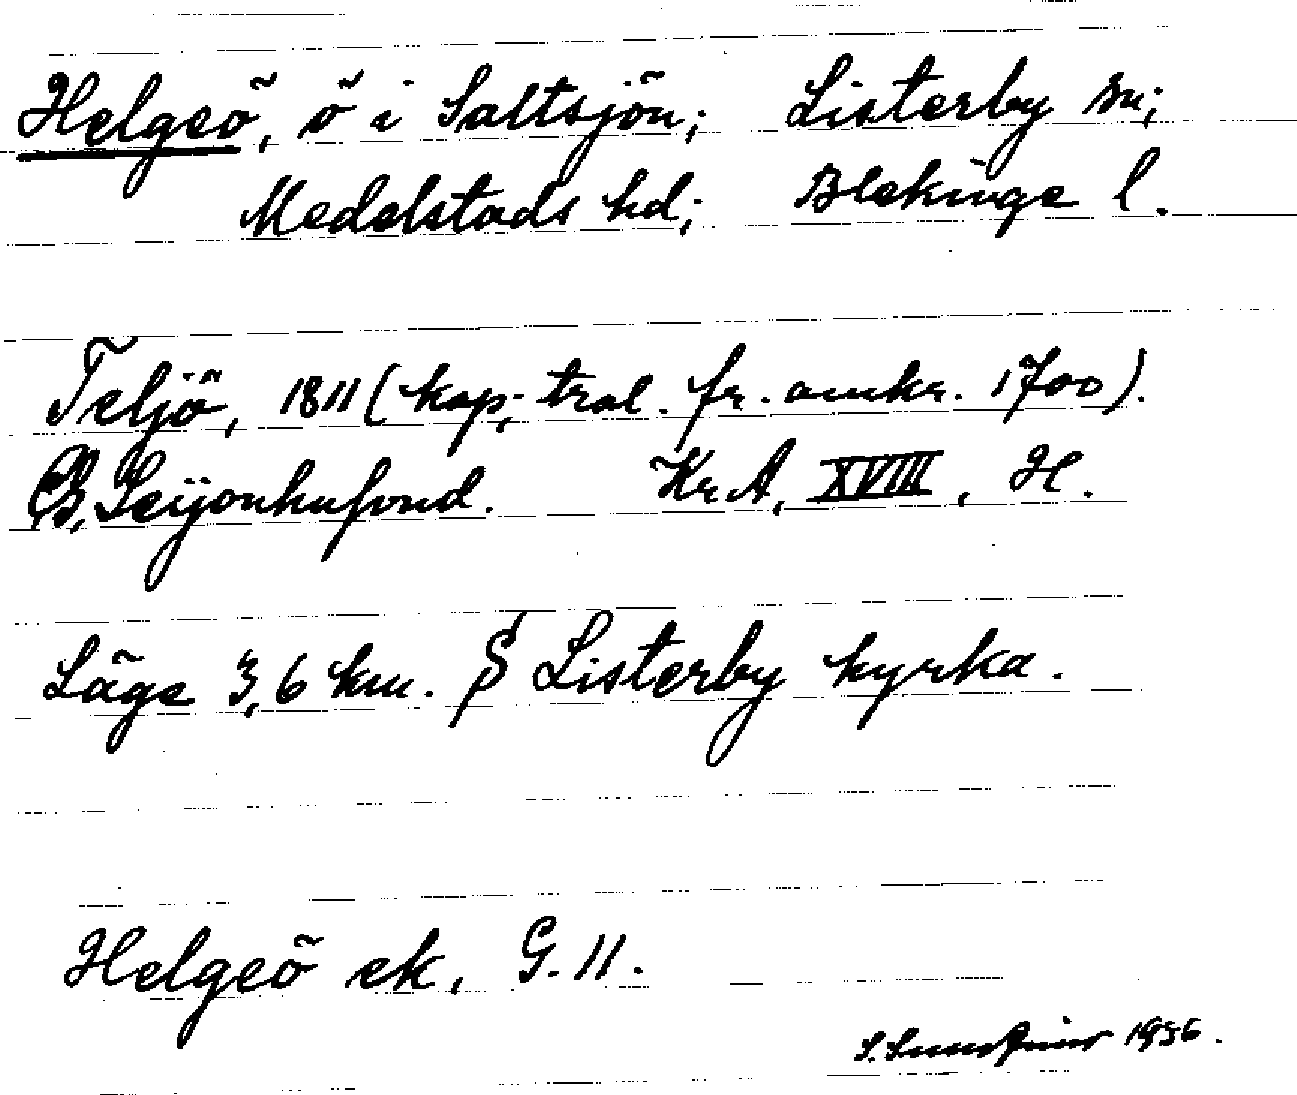 Helgeö, ö i Saltsjön; Listerby sn;
Medelstads hd; Blekinge l.
Teljö, 1811 (kop; tral. fr. omkr. 1700).
B. Leijonhufvud. KrA, XVIII, H.
Läge 3,6 km. S Listerby kyrka.
Helgeö ek, G. 11.
1936.